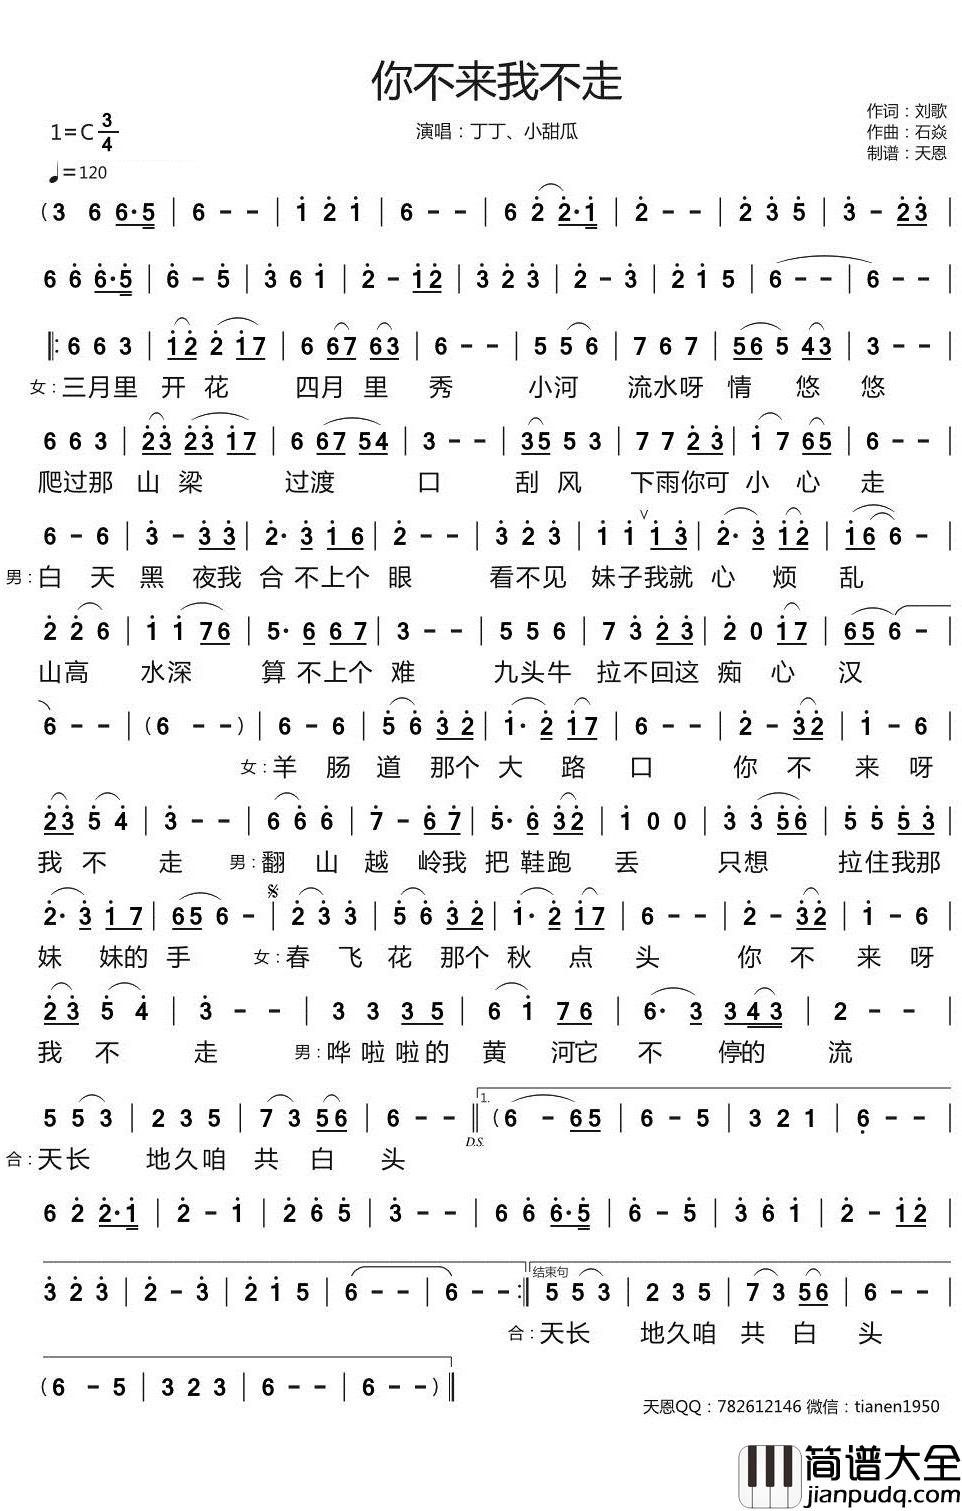 你不来我不走
1=C 3/4
演唱：丁丁、小甜瓜
作词：刘歌
作曲：石焱
制谱：天恩
♩=120
(3 6 6·5 | 6 - - | i 2 i | 6 - - | 6 2 2·i | 2 - - | 2 3 5 | 3 - 23 |
6 6 6·5 | 6 - 5 | 3 6 i | 2 - i2 | 3 2 3 | 2 - 3 | 2 i 5 | 6 - - | 6 - - |
‖: 6 6 3 | i2 2 i7 | 6 67 63 | 6 - - | 5 5 6 | 7 6 7 | 56 5 43 | 3 - - |
女：三月里 开 花 四月 里 秀 小河 流水呀 情 悠 悠
6 6 3 | 23 23 i7 | 6 67 54 | 3 - - | 35 5 3 | 7 7 23 | i 7 65 | 6 - - |
爬过那 山 梁 过渡 口 刮 风 下雨你可 小 心 走
6 - 6 | 3 - 33 | 2· 3 i6 | 2 - - | 3 2 3 | i i i3 | 2· 3 i2 | i6 6 - |
男：白 天 黑 夜我 合 不上个 眼 看不见 妹子我就 心 烦 乱
2 2 6 | i i 76 | 5· 6 67 | 3 - - | 5 5 6 | 7 3 23 | 2 0 i7 | 65 6 - |
山高 水深 算 不上个 难 九头牛 拉不回这 痴 心 汉
6 - - | (6 - -) | 6 - 6 | 5 6 32 | i· 2 i7 | 6 - - | 2 - 32 | i - 6 |
女：羊 肠 道 那个 大 路 口 你 不 来 呀
23 5 4 | 3 - - | 6 6 6 | 7 - 67 | 5· 6 32 | i 0 0 | 3 3 56 | 5 5 53 |
我 不 走 男：翻 山 越 岭我 把 鞋跑 丢 只想 拉住我那
2· 3 i7 | 65 6 - | 2 3 3 | 5 6 32 | i· 2 i7 | 6 - - | 2 - 32 | i - 6 |
妹 妹的 手 女：春 飞 花 那个 秋 点 头 你 不 来 呀
23 5 4 | 3 - - | 3 3 35 | 6 i 76 | 6· 3 343 | 2 - - |
我 不 走 男：哗 啦 啦的 黄 河它 不 停的 流
5 5 3 | 2 3 5 | 7 3 56 | 6 - - ‖ D.S. 1. (6 - 65 | 6 - 5 | 3 2 1 | 6 - - |
合：天长 地久咱 共 白 头
6 2 2·i | 2 - i | 2 6 5 | 3 - - | 6 6 6·5 | 6 - 5 | 3 6 i | 2 - i2 |
3 2 3 | 2 - 3 | 2 i 5 | 6 - - | 6 - - :‖ 结束句 5 5 3 | 2 3 5 | 7 3 56 | 6 - - |
合：天长 地久咱 共 白 头
(6 - 5 | 3 2 3 | 6 - - | 6 - -) ‖
天恩QQ：782612146 微信：tianen1950
简谱大全
jianpudq.com